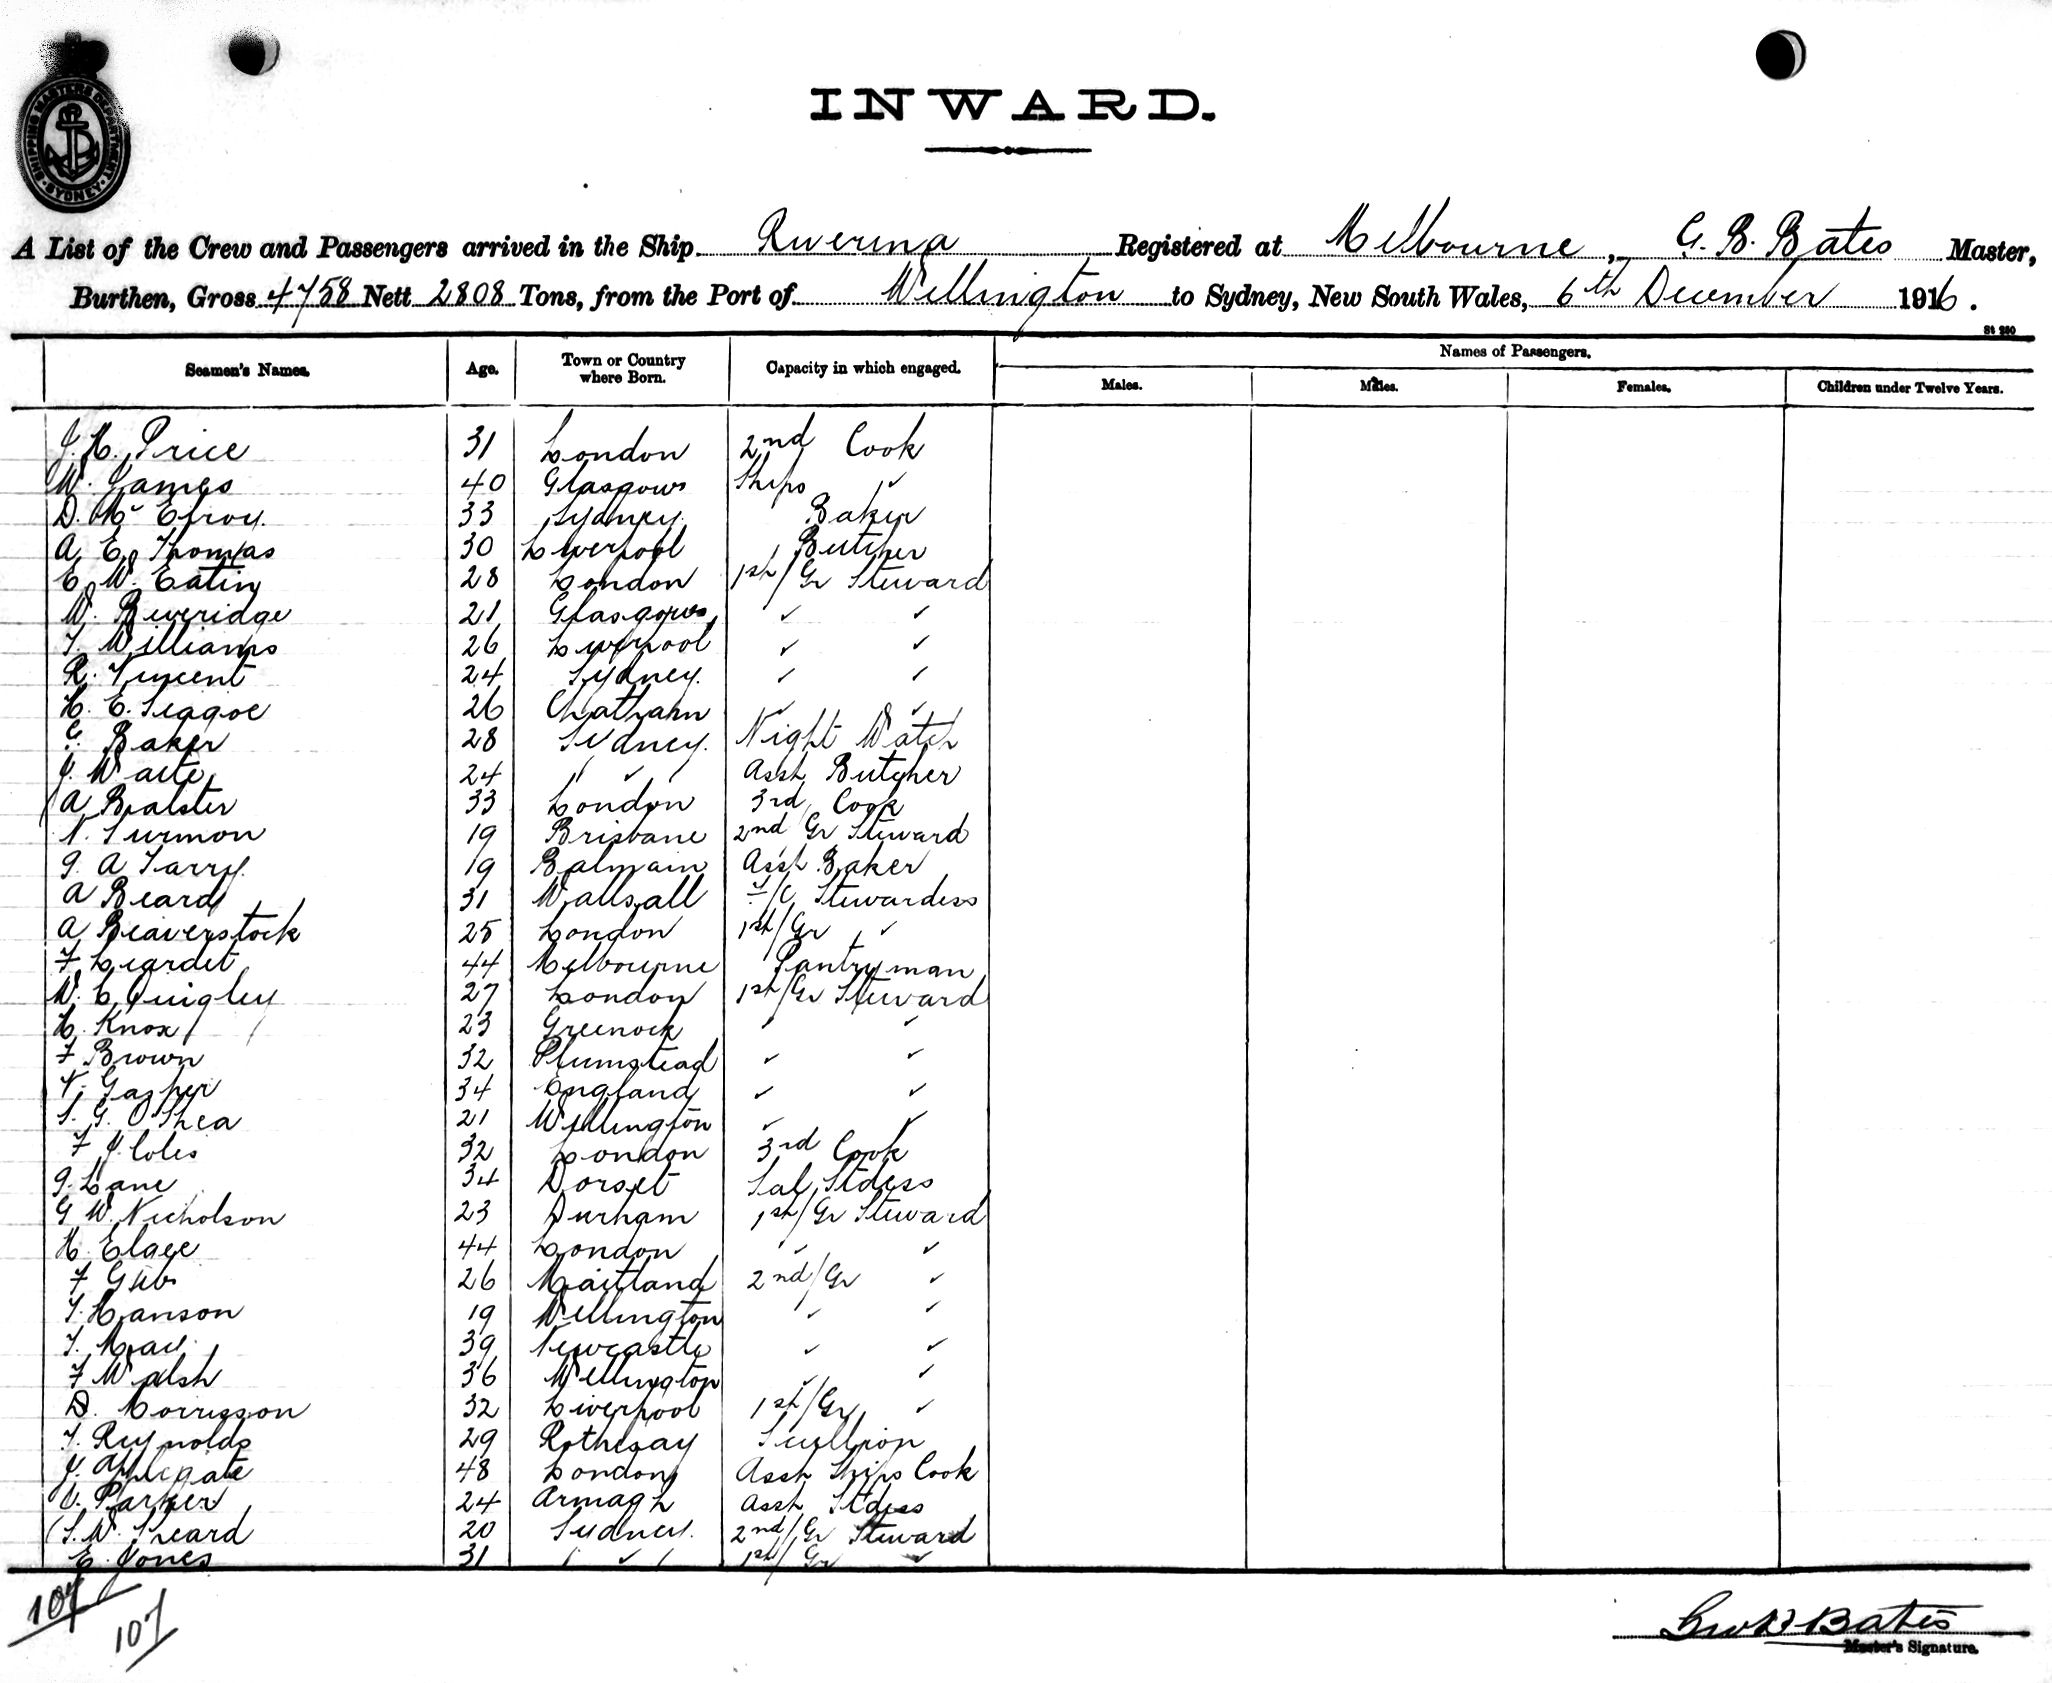 SHIPPING MASTERS DEPARTMENT
SYDNEY
INWARD.
A List of the Crew and Passengers arrived in the Ship Riverina Registered at Melbourne, G. B. Bates Master,
Burthen, Gross 4758 Nett 2808 Tons, from the Port of Wellington to Sydney, New South Wales, 6th December 1916.
St 260
Seamen's Names. Age. Town or Country where Born. Capacity in which engaged. Names of Passengers.
Males. Males. Females. Children under Twelve Years.
J. H. Price 31 London 2nd Cook
W. James 40 Glasgow Ships ✓
D. McElroy. 33 Sydney. Baker
A. E. Thomas 30 Liverpool Butcher
E. W. Eating 28 London 1st/Gr Steward
W. Beveridge 21 Glasgow ✓ ✓
T. Williams 26 Liverpool ✓ ✓
R. Vincent 24 Sydney. ✓ ✓
H. E. Seagoe 26 Chatham ✓ ✓
G. Baker 28 Sydney. Night Watch
J. Waite 24 ✓ Asst Butcher
A Balster 33 London 3rd Cook
N. Surmon 19 Brisbane 2nd Gr Steward
G. A Tarry. 19 Balmain Asst Baker
A Beard 31 Wallsall F/C Stewardess
A Beaverstock 25 London 1st/Gr ✓
F Liardet 44 Melbourne Pantryman
W. C Quigley 27 London 1st/Gr Steward
H. Knox 23 Greenock ✓ ✓
F Brown 32 Plumstead ✓ ✓
34 England ✓ ✓
S. G. O'Shea 21 Wellington ✓ ✓
F J Coles 32 London 3rd Cook
G. Lane 34 Dorset Sal, Stdess
G W. Nicholson 23 Durham 1st/Gr Steward
H. 44 London ✓ ✓
F 26 Maitland 2nd/Gr ✓
T. Hanson 19 Wellington ✓ ✓
T. 39 Newcastle ✓ ✓
F Walsh 36 Wellington ✓ ✓
D. Morrisson 32 Liverpool 1st/Gr ✓
T. Reynolds 29 Rothesay Scullion
J. Applegate 48 London Asst Ships Cook
Parker 24 Armagh Asst Stdess
S. W. Sheard 20 Sydney. 2nd/Gr Steward
E. Jones 31 ✓ 1st/Gr ✓
107
107
Geo B Bates
Master's Signature.